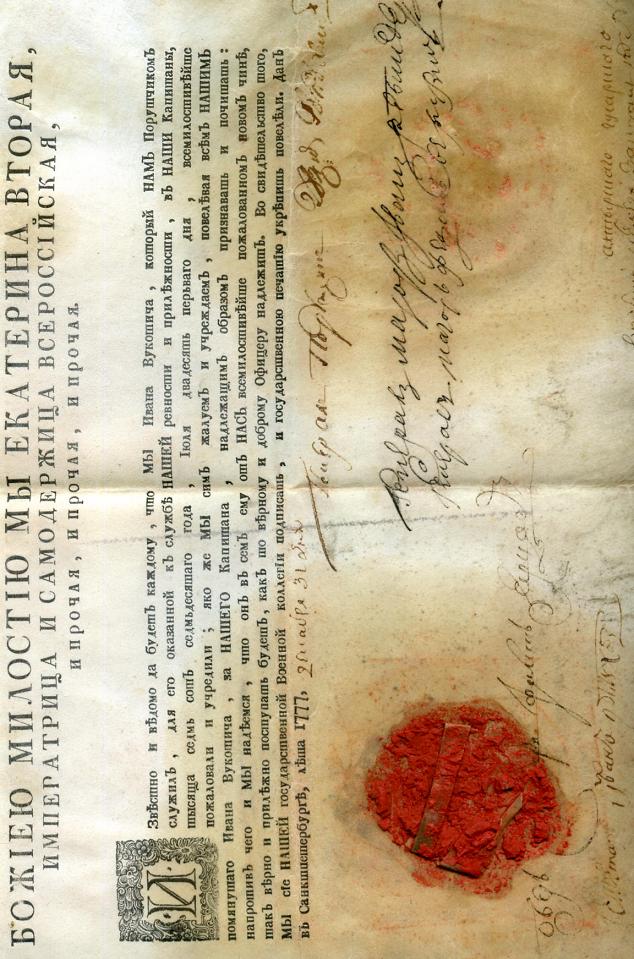 БОЖІЕЮ МИЛОСТІЮ МЫ ЕКАТЕРИНА ВТОРАЯ,
ИМПЕРАТРИЦА И САМОДЕРЖИЦА ВСЕРОССІЙСКАЯ,
И ПРОЧАЯ, И ПРОЧАЯ, И ПРОЧАЯ.
ИЗвѣстно и вѣдомо да будетъ каждому, что МЫ Ивана Вукотича, который НАМЪ Порутчикомъ
служилъ, для его оказанной къ службѣ НАШЕЙ ревности и прилѣжности, въ НАШИ Капитаны,
тысяща седмь сотъ седмьдесятаго года, Іюля двадесять перьваго дня, всемилостивѣйше
пожаловали и учредили; яко же МЫ симъ жалуемъ и учреждаемъ, повелѣвая всѣмъ НАШИМЪ
помянутаго Ивана Вукотича, за НАШЕГО Капитана, надлежащимъ образомъ признавать и почитать:
напротивъ чего и МЫ надѣемся, что онъ въ семъ ему отъ НАСЪ всемилостивѣйше пожалованномъ новомъ чинѣ,
такъ вѣрно и прилѣжно поступать будетъ, какъ то вѣрному и доброму Офицеру надлежитъ. Во свидѣтельство того,
МЫ сіе НАШЕЙ государственной Военной коллегіи подписать, и государственною печатію укрѣпить повелѣли. Данъ
въ Санктпетербургѣ, лѣта 1777, декабря 31 дня
Генералъ Порутчикъ
Генералъ маіоръ
Генералъ маіоръ